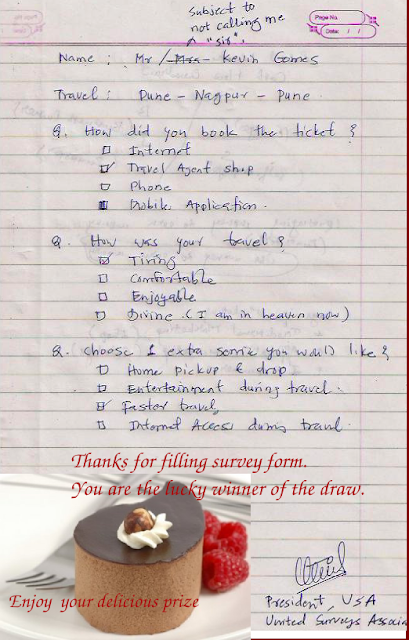 Subject to
not calling me
"sir".
Page No.
Date: / /
Name : Mr /Mrs Kevin Gomes
Travel : Pune - Nagpur - Pune.
Q. How did you book the ticket?
Internet
Travel Agent shop
Phone
Mobile Application.
Q. How was your travel?
Tiring
Comfortable
Enjoyable
Divine. (I am in heaven now)
Q. Choose 1 extra service you would like?
Home pickup & drop
Entertainment during travel.
Faster travel
Internet Access during travel.
Thanks for filling survey form.
You are the lucky winner of the draw.
Enjoy your delicious prize
President, USA
United Surveys Associa